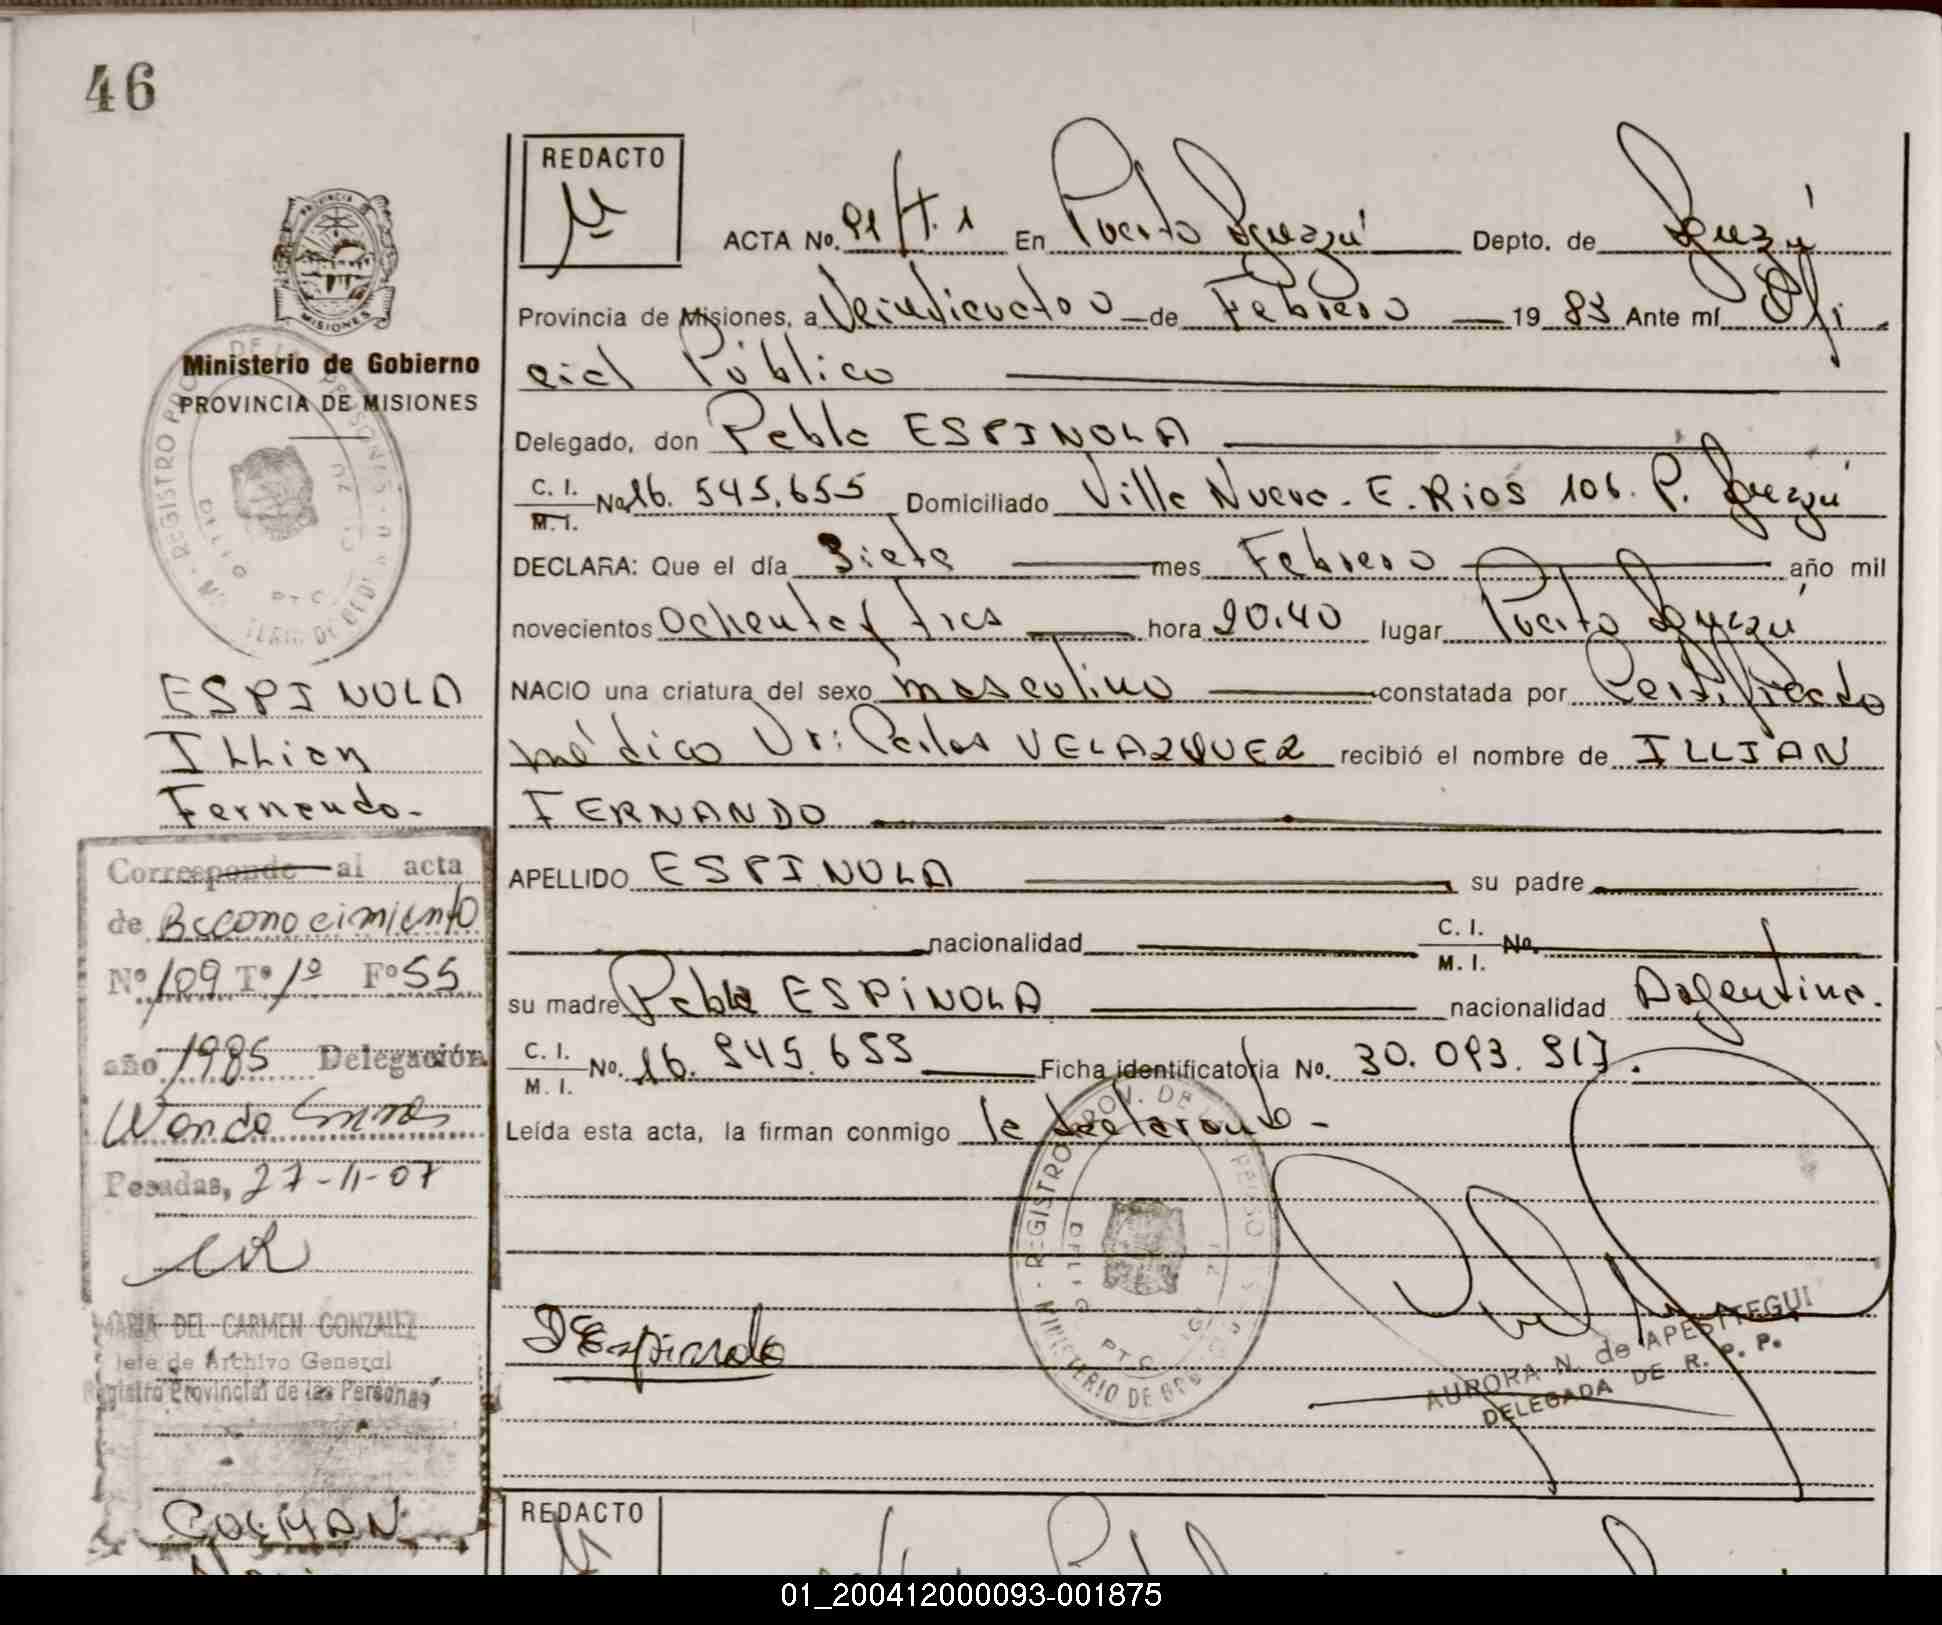 46
REDACTO
ACTA No. 91/T.1 En Puerto Iguazú Depto. de Iguazú
Provincia de Misiones, a Veinticuatro de Febrero 1983 Ante mí Ofi
cial Público
Delegado, don Pabla ESPINOLA
C. I. M. I. No. 16.545.655 Domiciliado Villa Nueva - E. Rios 106. P. Iguazú
DECLARA: Que el día Siete mes Febrero año mil
novecientos Ochenta y tres hora 20.40 lugar Puerto Iguazú
NACIO una criatura del sexo masculino constatada por Certificado
médico Dr: Carlos VELAZQUEZ recibió el nombre de ILLIAN
FERNANDO
APELLIDO ESPINOLA su padre
nacionalidad C. I. M. I. No.
su madre Pabla ESPINOLA nacionalidad Argentina.
C. I. M. I. No. 16.545.655 Ficha identificatoria No. 30.093.917.
Leída esta acta, la firman conmigo la declarante -
AURORA N. de APESTEGUI
DELEGADA DE R. P. P.
PROVINCIA DE
MISIONES
Ministerio de Gobierno
PROVINCIA DE MISIONES
ESPINOLA
Illian
Fernando-
Corresponde al acta
de Reconocimiento
Nº 109 Tº 1º Fº 55
año 1985 Delegación
Wanda
Posadas, 27-11-07
MARIA DEL CARMEN GONZALEZ
Jefe de Archivo General
Registro Provincial de las Personas
COLMAN
REDACTO
01_200412000093-001875